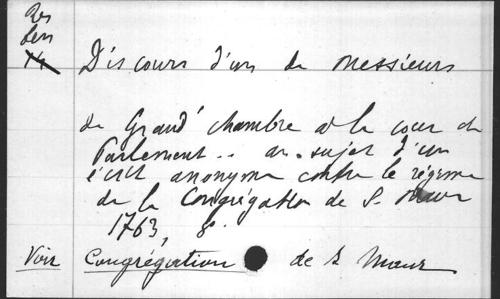 Res
Discours d'un de Messieurs
de Grand' chambre à la cour de
Parlement.. au sujet d'un
écrit anonyme contre le régime
de la Congrégation de S. Maur
1763, 8°.
Voir Congrégation de S Maur